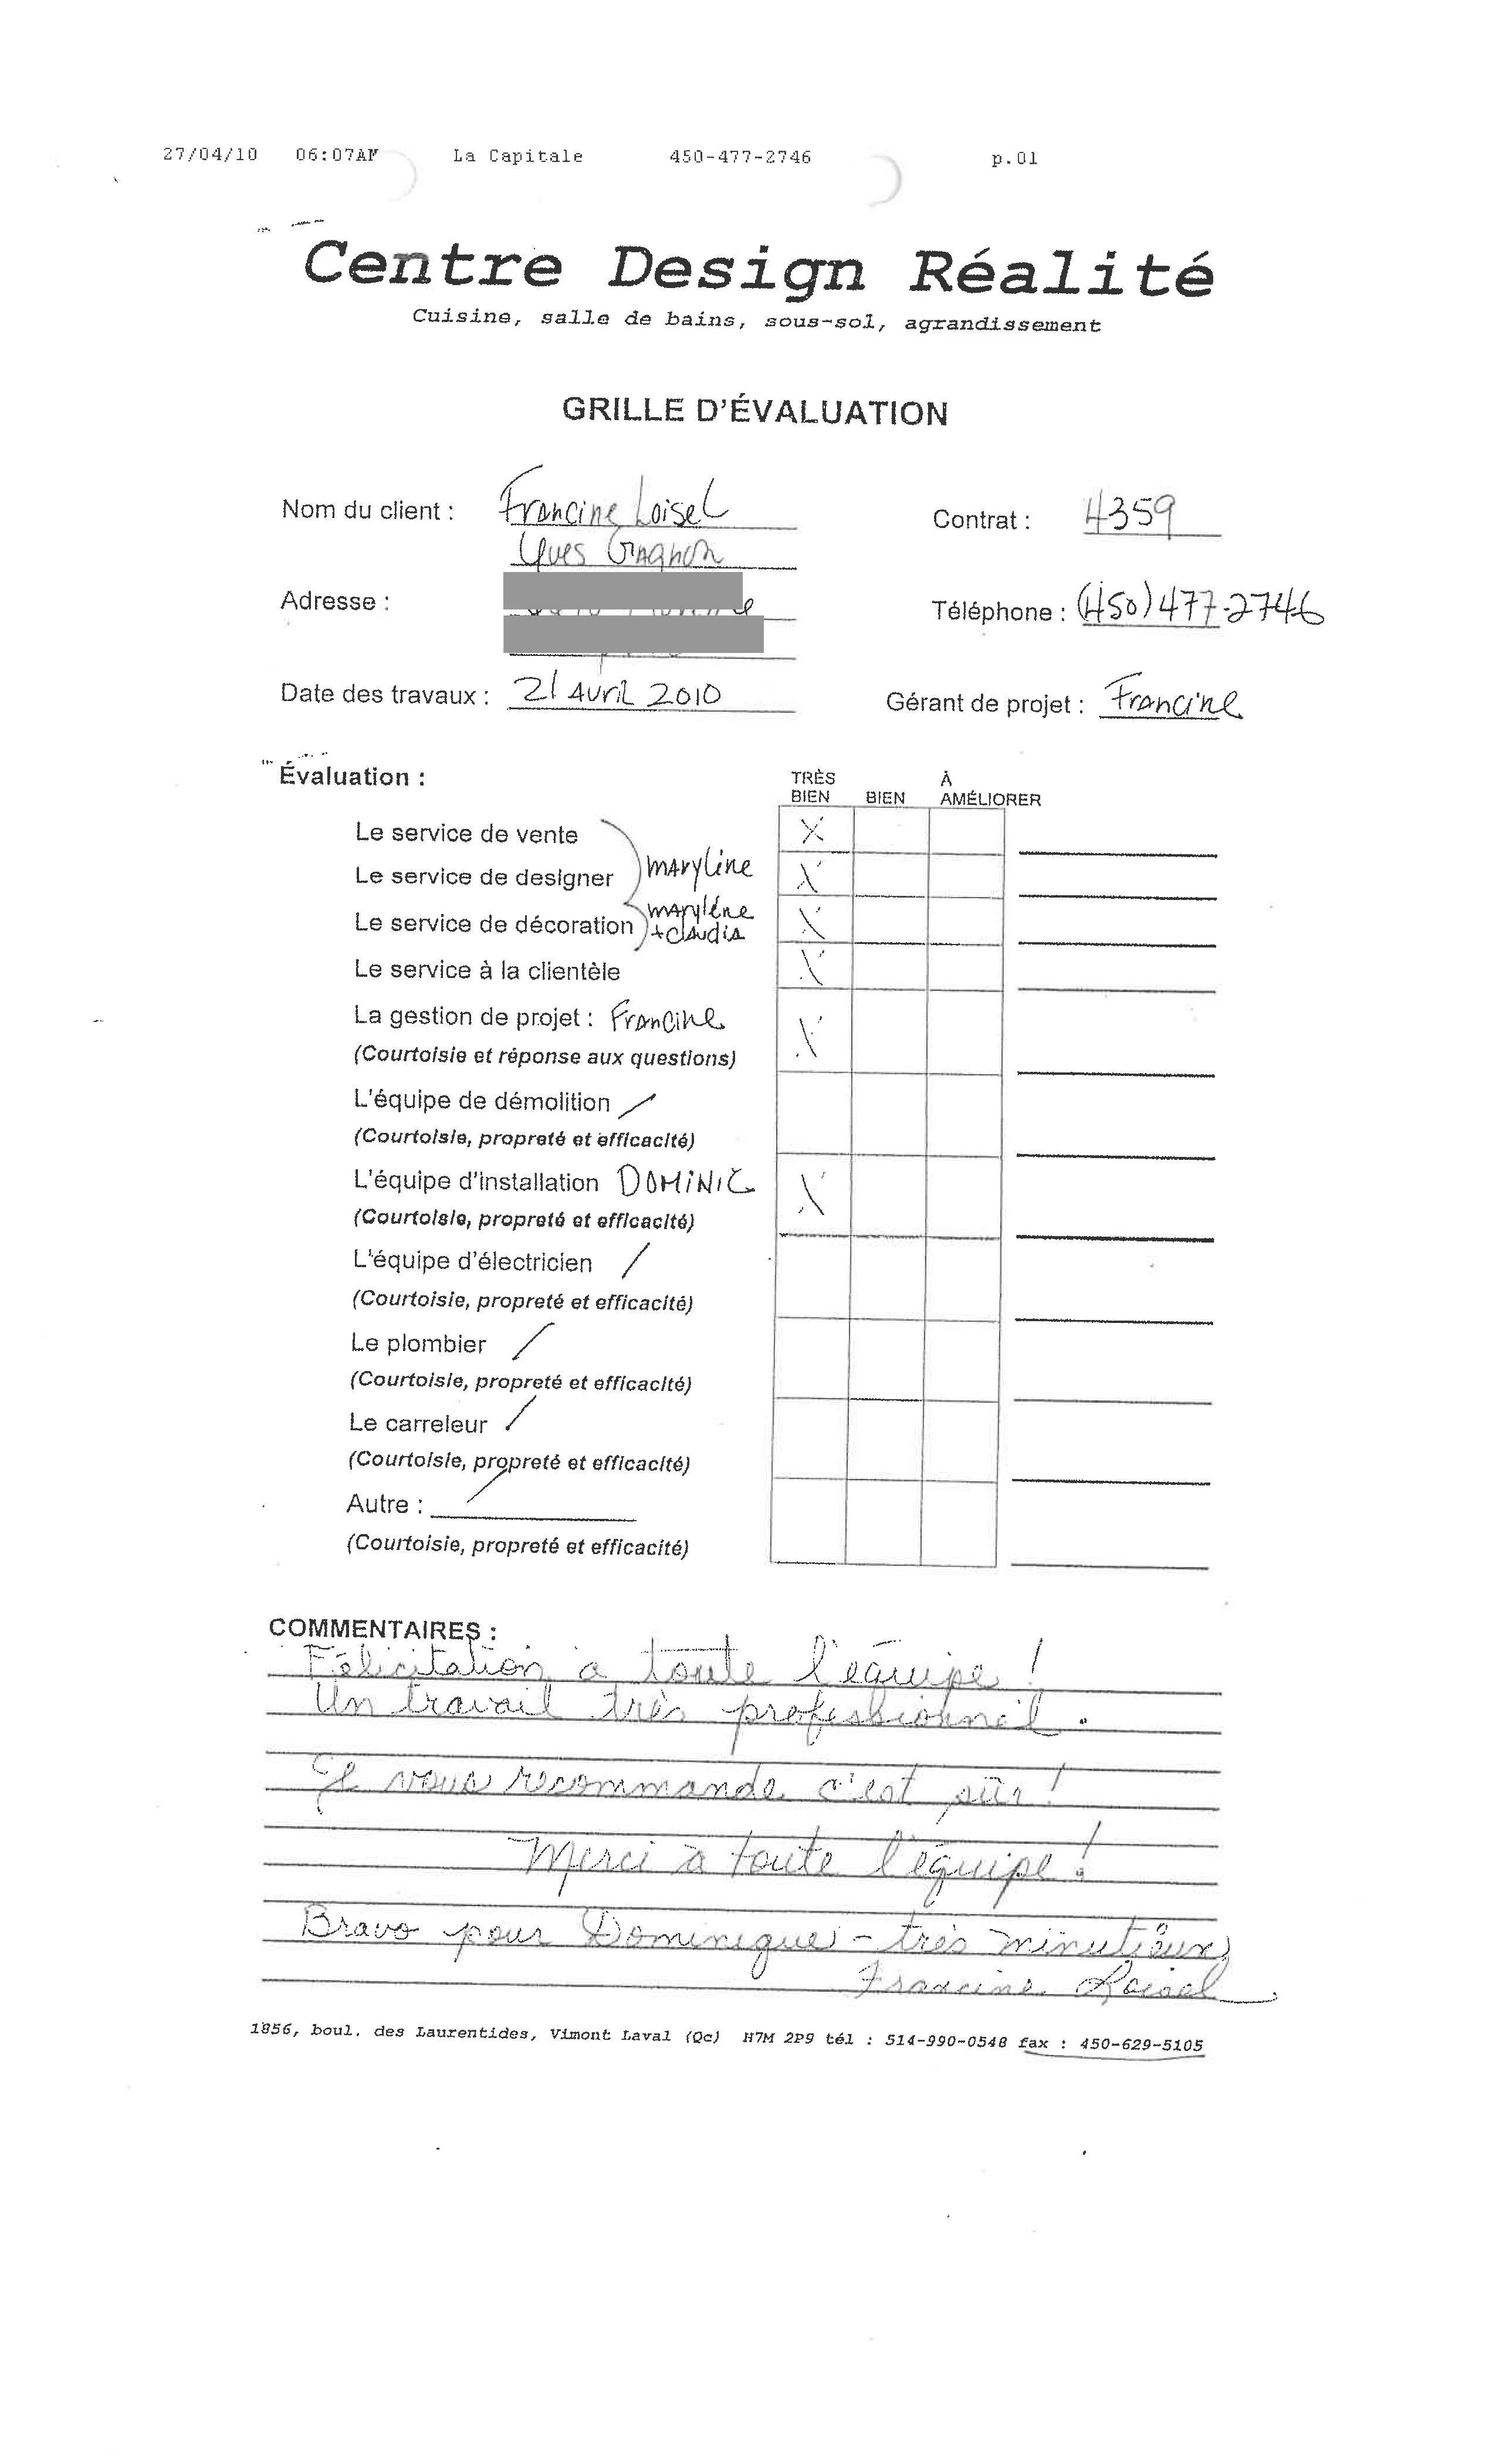 27/04/10 06:07AM La Capitale 450-477-2746 p.01
Centre Design Réalité
Cuisine, salle de bains, sous-sol, agrandissement
GRILLE D'ÉVALUATION
Nom du client : Francine Loisel Contrat : 4359
Yves Gagnon
Adresse : Téléphone : (450) 477-2746
Date des travaux : 21 Avril 2010 Gérant de projet : Francine
Évaluation : TRÈS BIEN BIEN À AMÉLIORER
Le service de vente X
Le service de designer Maryline X
Le service de décoration Marylène + Claudia X
Le service à la clientèle X
La gestion de projet : Francine X
(Courtoisie et réponse aux questions)
L'équipe de démolition /
(Courtoisie, propreté et efficacité)
L'équipe d'installation DOMINIC X
(Courtoisie, propreté et efficacité)
L'équipe d'électricien /
(Courtoisie, propreté et efficacité)
Le plombier /
(Courtoisie, propreté et efficacité)
Le carreleur /
(Courtoisie, propreté et efficacité)
Autre : /
(Courtoisie, propreté et efficacité)
COMMENTAIRES :
Félicitation à toute l'équipe !
Un travail très professionnel.
Je vous recommande c'est sûr !
Merci à toute l'équipe !
Bravo pour Dominique - très minutieux
Francine Loisel
1856, boul. des Laurentides, Vimont Laval (Qc) H7M 2P9 tél : 514-990-0548 fax : 450-629-5105